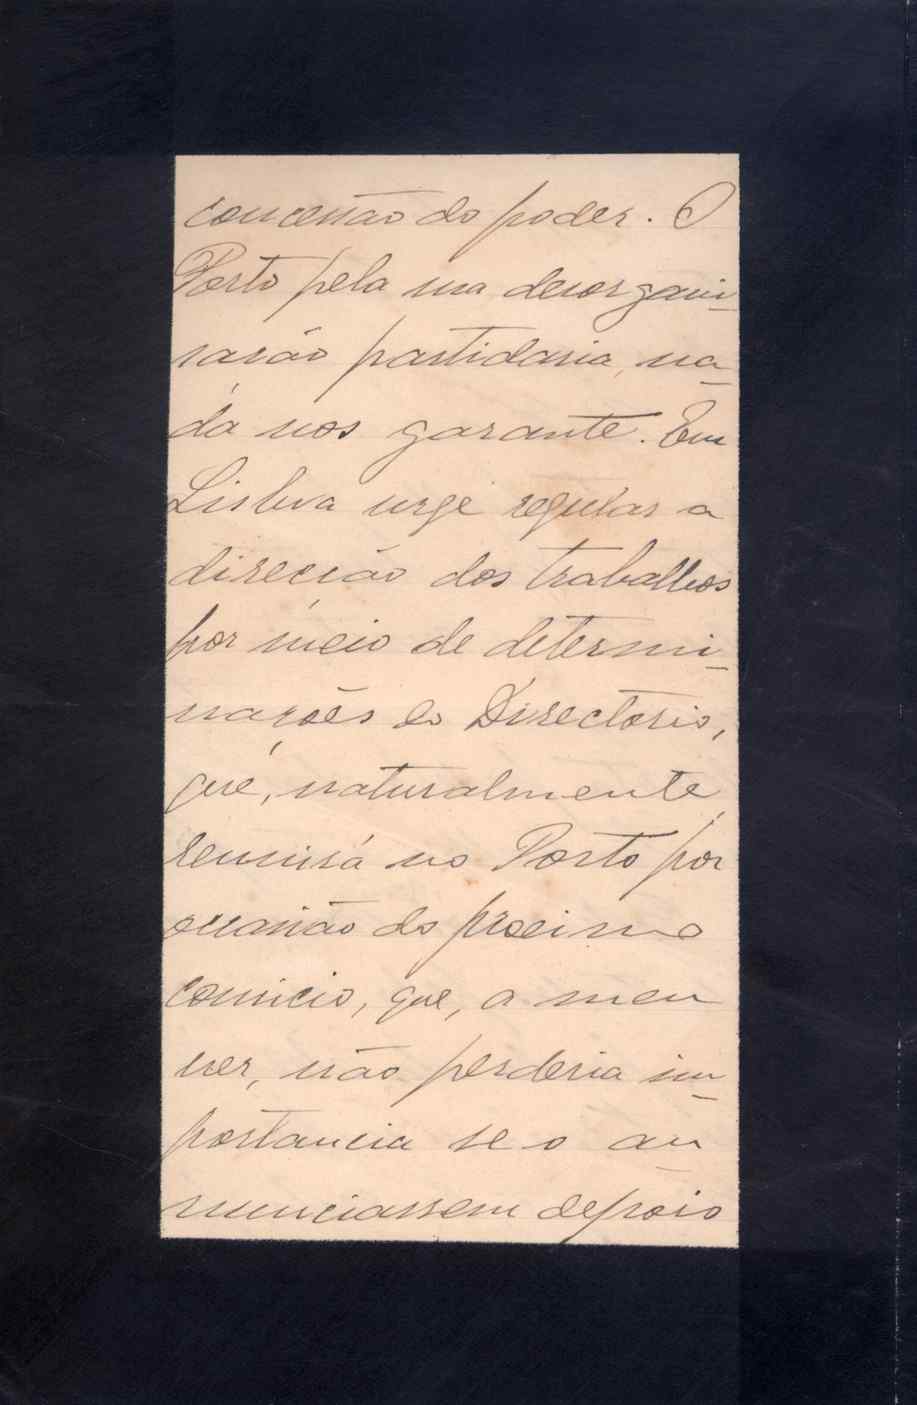 concessão do poder. O
Porto pela sua desorgani-
sação partidaria, na-
da nos garante. Em
Lisboa urge regular a
direcção dos trabalhos
por meio de determi-
nações do Directorio,
que, naturalmente,
reunirá no Porto por
occasião do proximo
comicio, que, a meu
ver, não perderia im-
portancia se o an
nunciassem depois